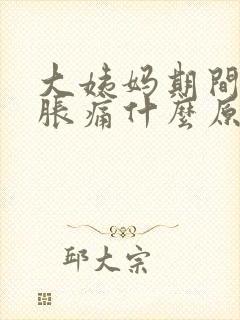 大姨妈期間
脹痛什麼原
邱大宗